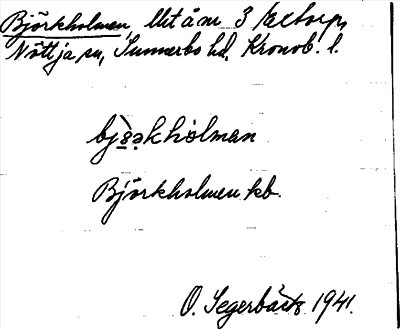 Björkholmen, lht å nr 3 Ekeltorp,
Nöttja sn, Sunnerbo hd, Kronob. l.
Björkholmen kb.
O. Segerbäck 1941.